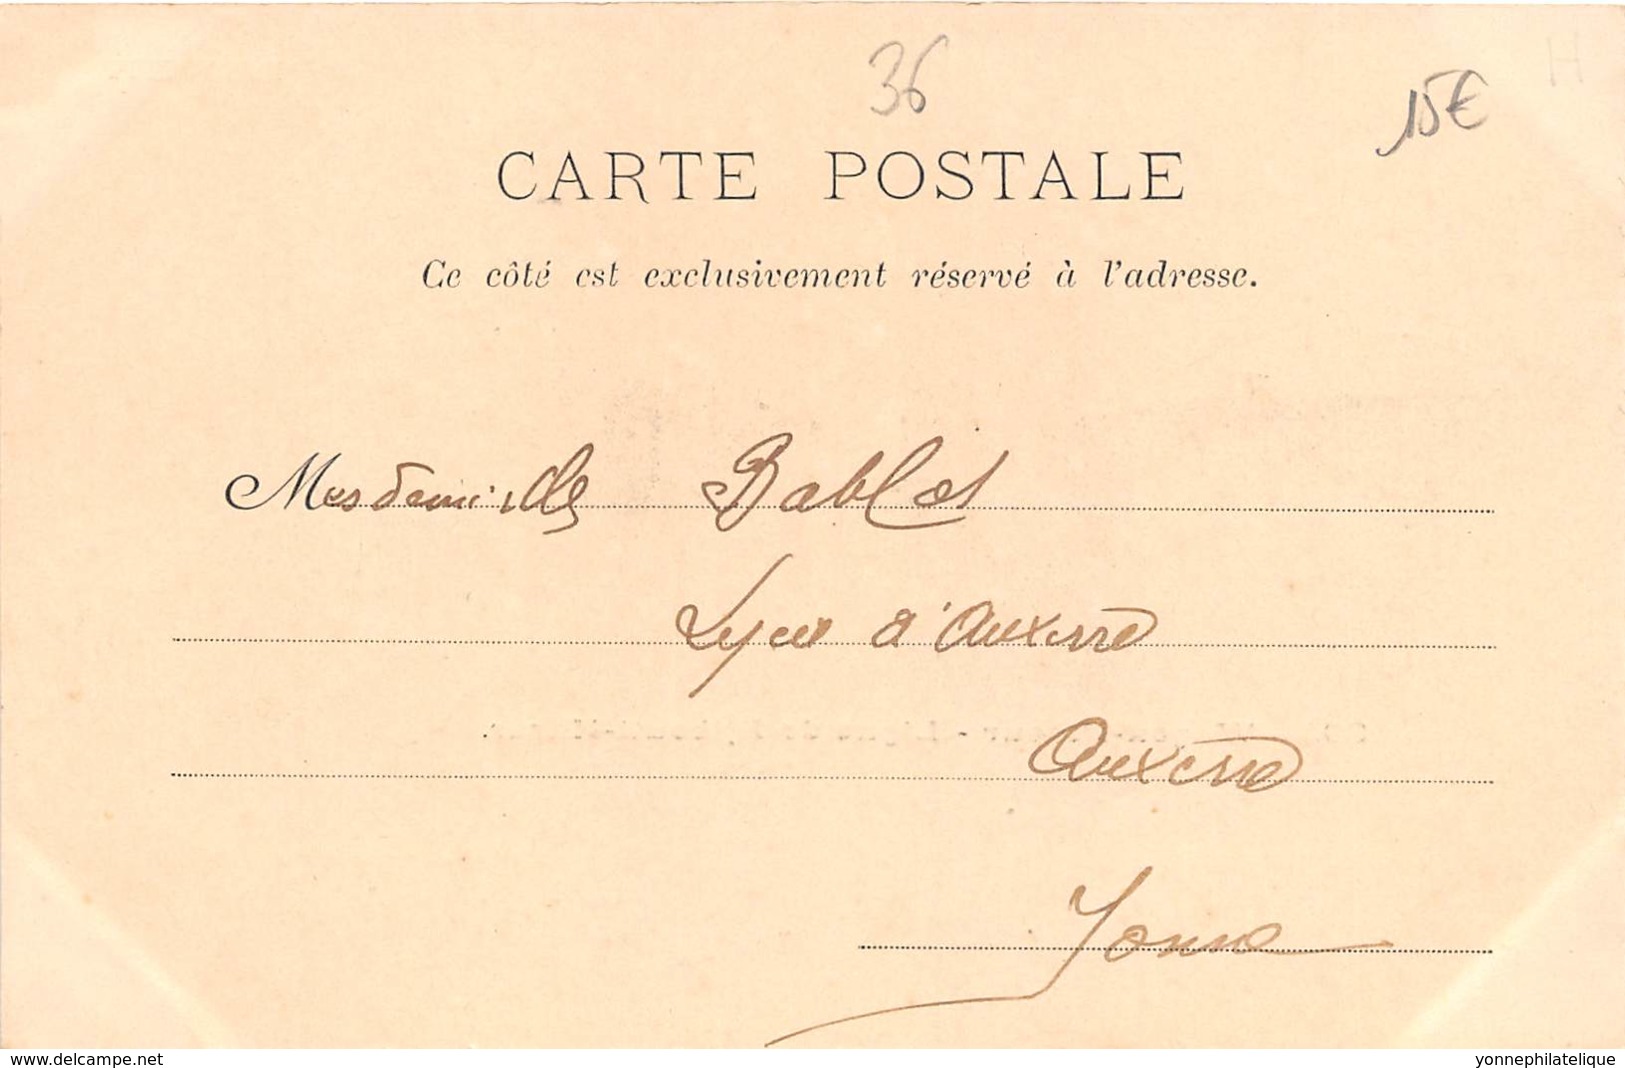 36
15€
H
CARTE POSTALE
Ce côté est exclusivement réservé à l'adresse.
Mesdemoiselles Bablot
Lycée d'Auxerre
Auxerre
Yonne
www.delcampe.net
yonnephilatelique